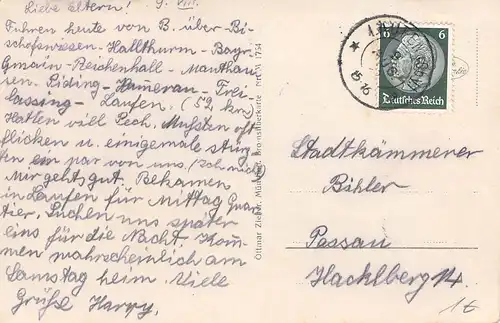 Liebe Eltern! 9. VIII.
Fuhren heute von B. über Bi-
schofswiesen-Hallthurm-Bayr.
Gmain-Reichenhall-Mauthau-
sen-Piding-Hammerau-Frei-
lassing-Laufen. (52 km)
Hatten viel Pech. Mußten oft
flicken u. einigemale stürz-
ten ein par von uns. (Ich nicht)
Mir gehts gut. Bekamen
in Laufen für Mittag Quar-
tier. Suchen uns später
eins für die Nacht. Kom-
men wahrscheinlich am
Samstag heim. Viele
Grüße Harry.
Ottmar Zieher, München
Nr. M 1754
6 6
Deutsches Reich
Stadtkämmerer
Bihler
Passau
Hacklberg 14.
1€